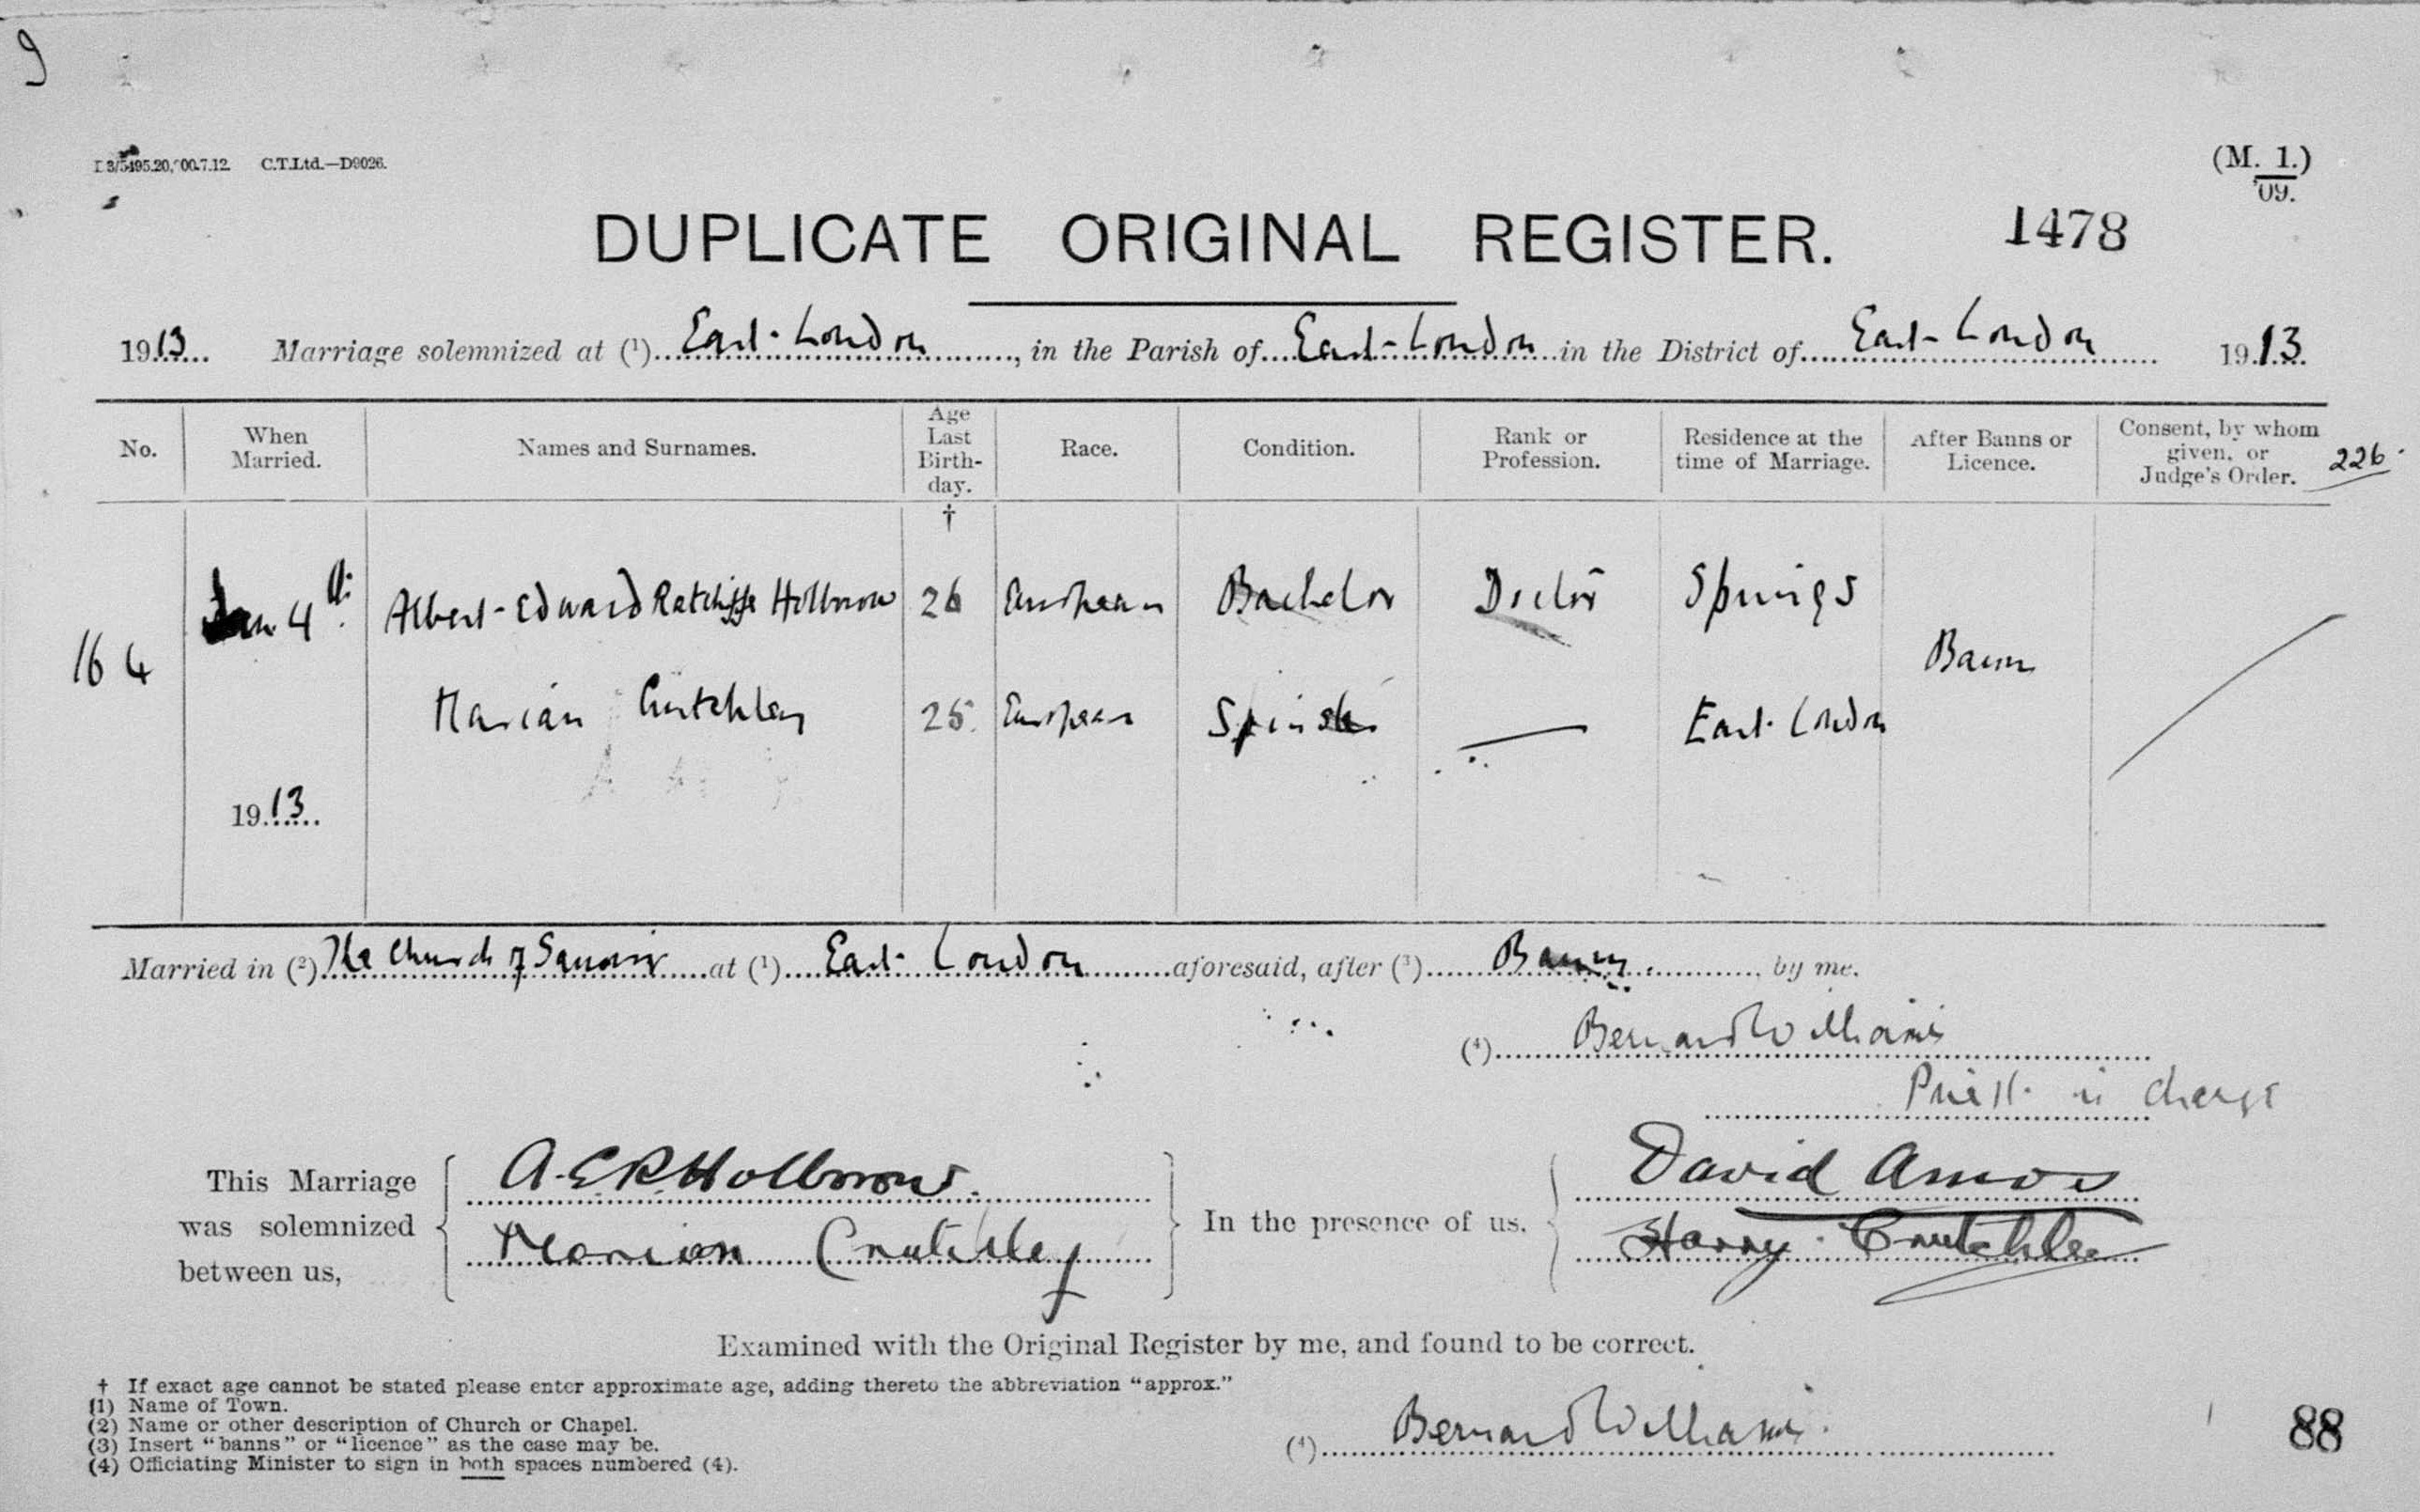 9
3/5495.20,000.7.12. C.T.Ltd.—D9026.
(M. 1.)
'09.
DUPLICATE ORIGINAL REGISTER. 1478
1913 Marriage solemnized at (1) East-London, in the Parish of East-London in the District of East-London 1913
No. When Married. Names and Surnames. Age Last Birth-day. Race. Condition. Rank or Profession. Residence at the time of Marriage. After Banns or Licence. Consent, by whom given, or Judge's Order. 226
†
164 Jan 4th Albert-Edward Ratcliffe Holbrow 26 European Bachelor Doctor Springs Banns
Marian Crutchley 25 European Spinster — East London
1913
Married in (2) The Church of at (1) East London aforesaid, after (3) Banns, by me.
(4) Bernard Williams
Priest in charge
This Marriage was solemnized between us,
A.E.R. Holbrow.
Marian Crutchley
In the presence of us,
David Amos
Harry Crutchley
Examined with the Original Register by me, and found to be correct.
† If exact age cannot be stated please enter approximate age, adding thereto the abbreviation "approx."
(1) Name of Town.
(2) Name or other description of Church or Chapel.
(3) Insert "banns" or "licence" as the case may be.
(4) Officiating Minister to sign in both spaces numbered (4).
(4) Bernard Williams.
88